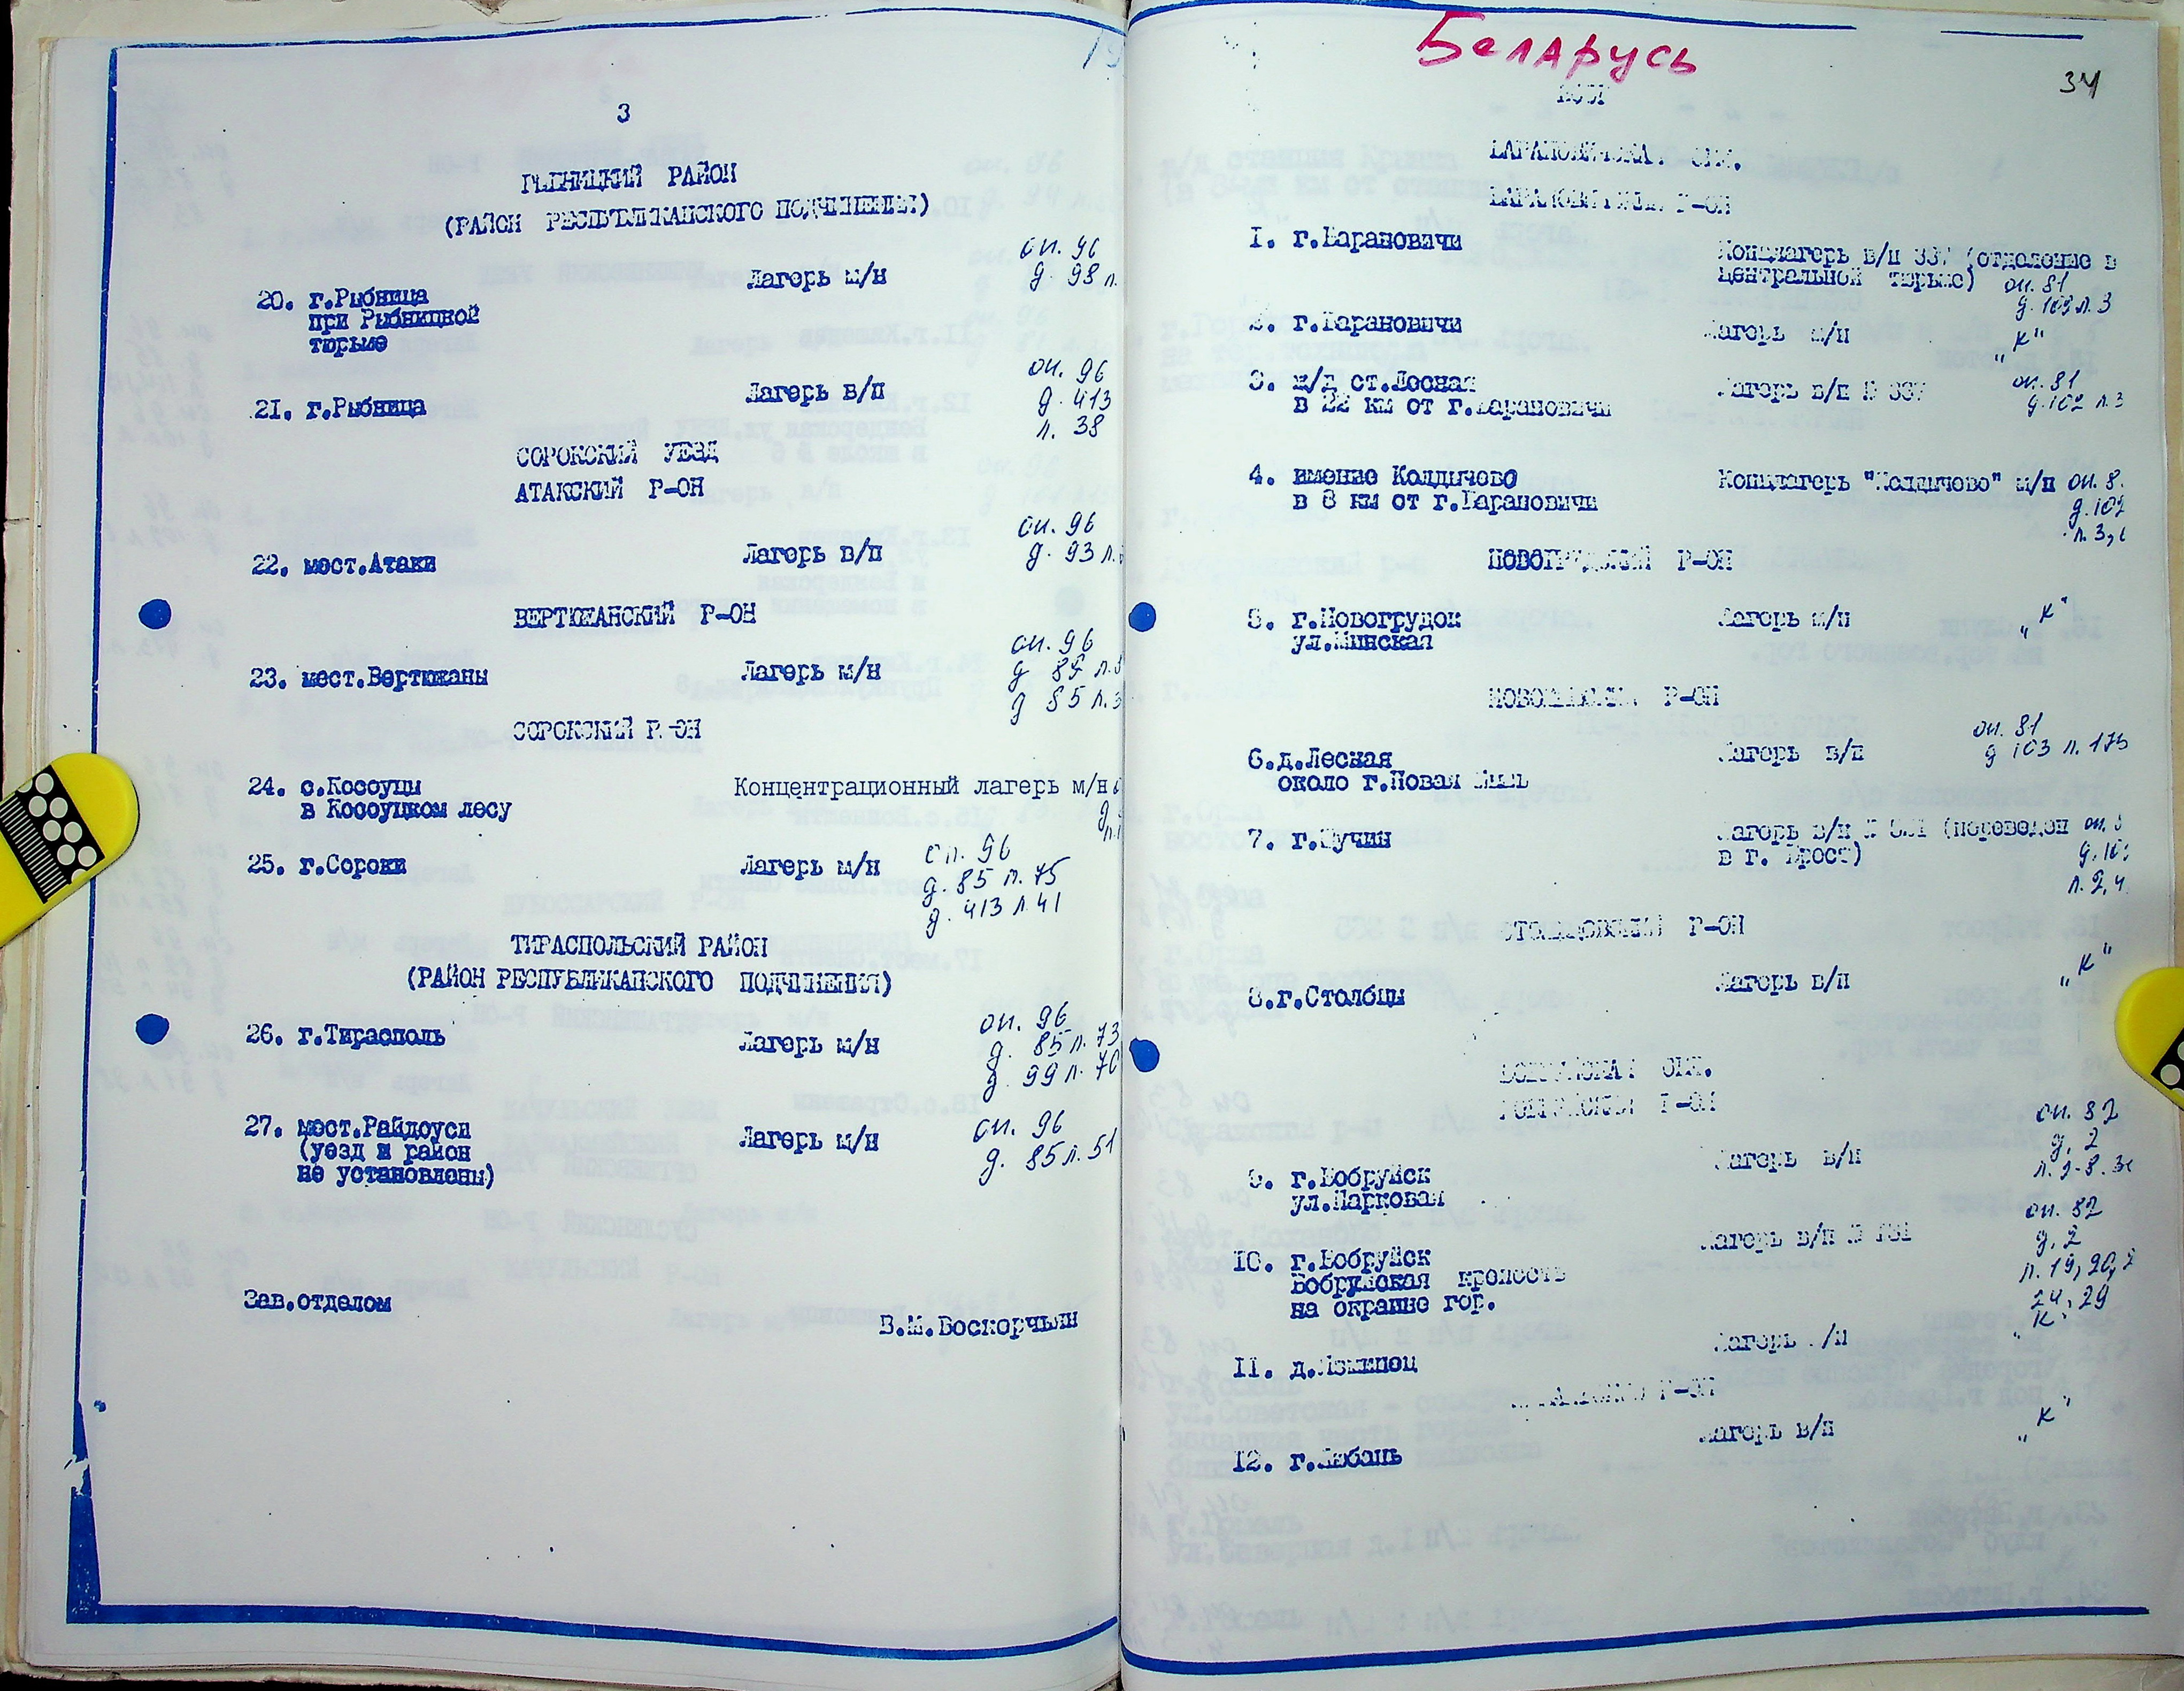 3
РЫБНИЦКИЙ РАЙОН
(РАЙОН РЕСПУБЛИКАНСКОГО ПОДЧИНЕНИЯ)
20. г.Рыбница Лагерь м/н оп. 96
при Рыбницкой д. 98 л.
тюрьме
21. г.Рыбница Лагерь в/п оп. 96
д. 413
л. 38
СОРОКСКИЙ УЕЗД
АТАКСКИЙ Р-ОН
22. мест.Атаки Лагерь в/п оп. 96
д. 93 л.
ВЕРТЮЖАНСКИЙ Р-ОН
23. мест.Вертюжаны Лагерь м/н оп. 96
д 85 л.
д 85 л.3
СОРОКСКИЙ Р-ОН
24. с.Косоуцы Концентрационный лагерь м/н
в Косоуцком лесу
25. г.Сороки Лагерь м/н оп. 96
д. 85 л. 75
д. 413 л 41
ТИРАСПОЛЬСКИЙ РАЙОН
(РАЙОН РЕСПУБЛИКАНСКОГО ПОДЧИНЕНИЯ)
26. г.Тирасполь Лагерь м/н оп. 96
д. 85 л. 73
д. 99 л. 70
27. мест.Райдоуси Лагерь м/н оп. 96
(уезд и район д. 85 л. 51
не установлены)
Зав.отделом
В.М.Воскорчьян
Беларусь
34
БССР
БАРАНОВИЧСКАЯ ОБЛ.
БАРАНОВИЧСКИЙ Р-ОН
1. г.Барановичи Концлагерь в/п 337 (отделение в
центральной тюрьме) оп. 81
д. 103 л. 3
2. г.Барановичи Лагерь м/н "К"
3. ж/д ст.Лесная Лагерь в/п № 337 оп. 81
в 22 км от г.Барановичи д. 102 л. 3
4. имение Колдычево Концлагерь "Колдычево" м/н оп. 8
в 8 км от г.Барановичи д. 102
л. 3,
НОВОГРУДСКИЙ Р-ОН
5. г.Новогрудок Лагерь м/н "К"
ул.Минская
НОВОМЫШСКИЙ Р-ОН
6.д.Лесная Лагерь в/п оп. 81
около г.Новая Мышь д 103 л. 173
7. г.Щучин Лагерь в/п (переведен оп. 8
в г. Брест) д. 10
л. 2, 4
СТОЛБЦОВСКИЙ Р-ОН
8.г.Столбцы Лагерь в/п "К"
БОБРУЙСКАЯ ОБЛ.
БОБРУЙСКИЙ Р-ОН
9. г.Бобруйск Лагерь в/п оп. 82
ул.Парковая д. 2
10. г.Бобруйск Лагерь в/п № оп. 82
Бобруйская крепость д. 2
на окраине гор. л. 19, 20,
24, 29
11. д.Лагерь /п "К"
Р-ОН
12. г.Любань Лагерь в/п "К"